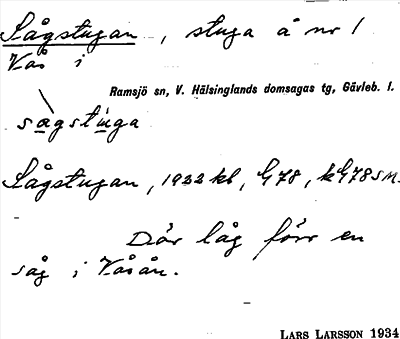 Sågstugan, stuga å nr 1
Vås i
Ramsjö sn, V. Hälsinglands domsagas tg, Gävleb. l.
sagstuga
Sågstugan, 1922 kl, G78, kG78SM.
Där låg förr en
såg i Våsån.
LARS LARSSON 1934